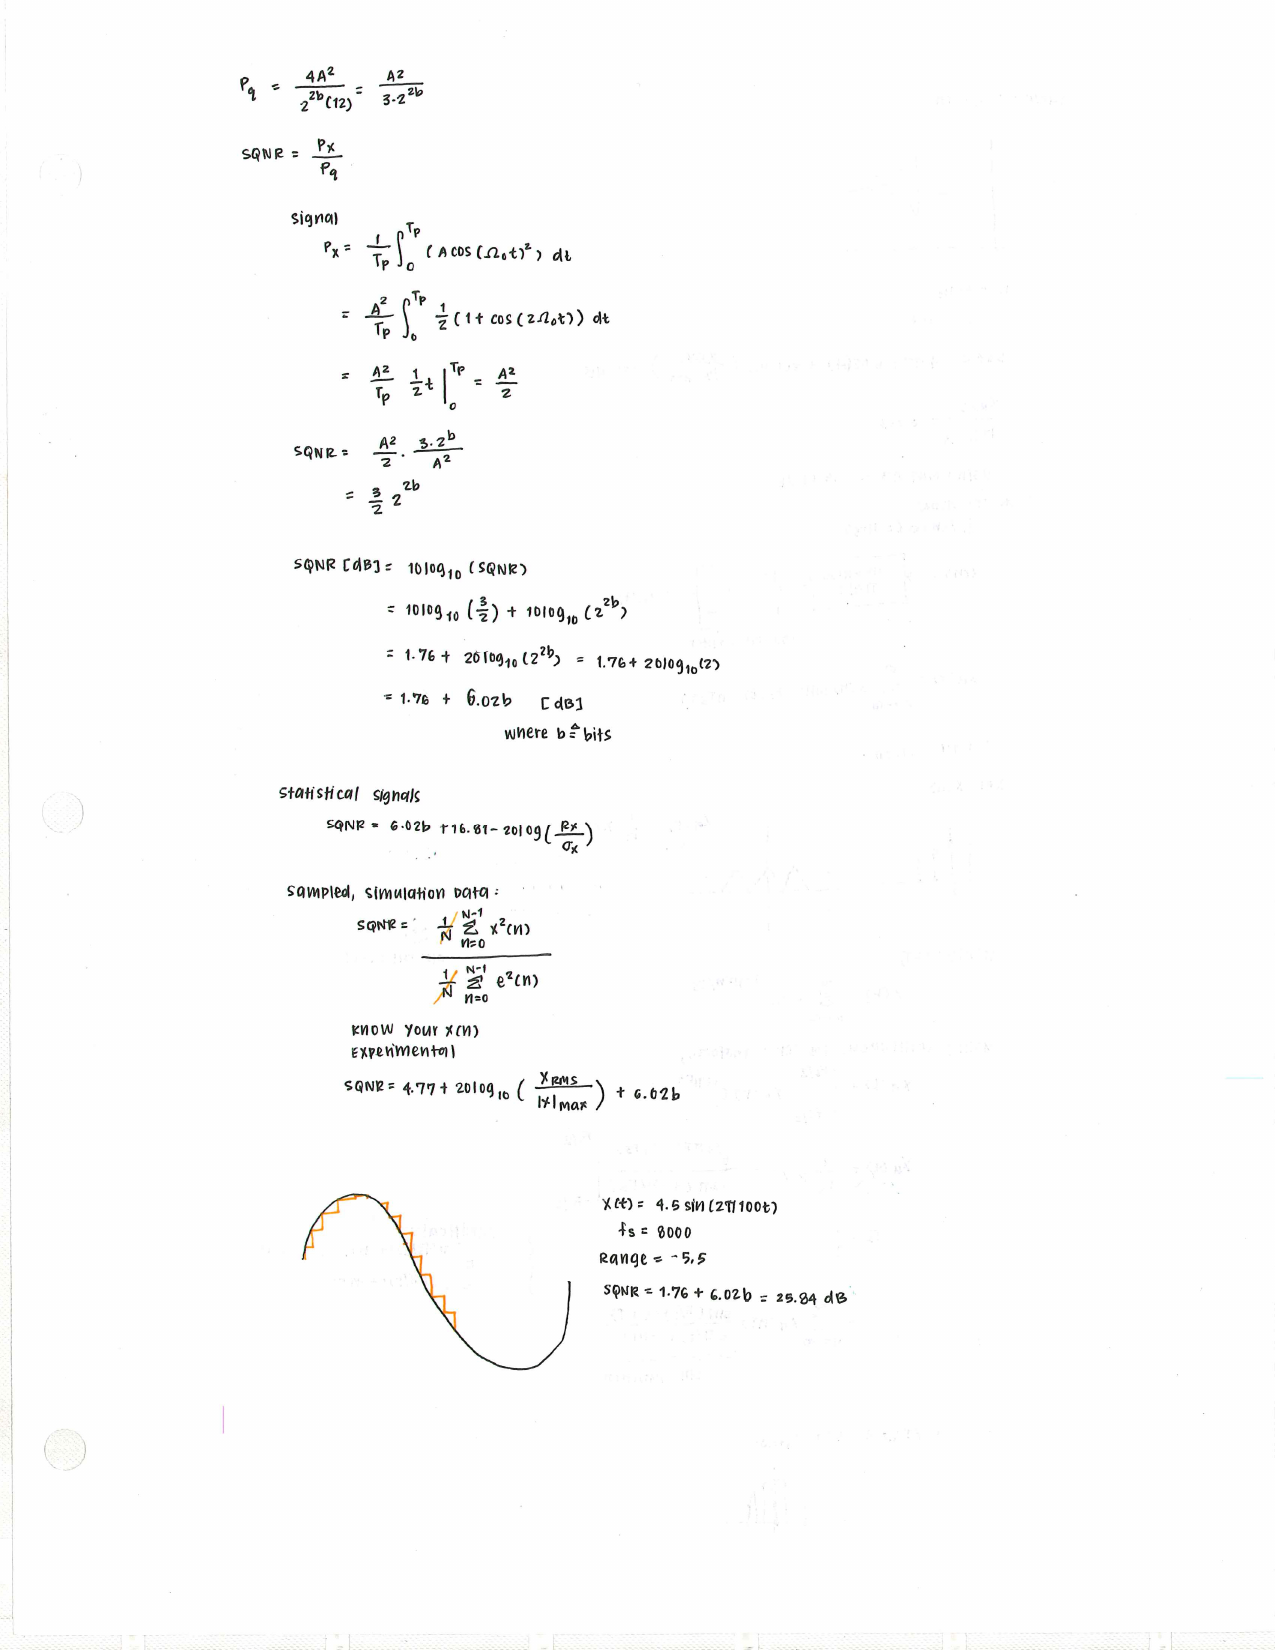 P_q = 4A² / 2^{2b}(12) = A² / 3·2^{2b}
SQNR = P_x / P_q
signal
P_x = 1/T_p ∫_0^{T_p} (A cos(Ω_0 t)²) dt
= A²/T_p ∫_0^{T_p} 1/2 (1 + cos(2Ω_0 t)) dt
= A²/T_p 1/2 t |_0^{T_p} = A²/2
SQNR = A²/2 · 3·2^b / A²
= 3/2 2^{2b}
SQNR [dB] = 10log_10 (SQNR)
= 10log_10 (3/2) + 10log_10 (2^{2b})
= 1.76 + 20log_10 (2^{2b}) = 1.76 + 20log_10(2)
= 1.76 + 6.02b [dB]
where b ≙ bits
statistical signals
SQNR = 6.02b + 16.81 - 20log(R_x / σ_x)
sampled, simulation Data:
SQNR = 1/N Σ_{n=0}^{N-1} x²(n)
1/N Σ_{n=0}^{N-1} e²(n)
Know your x(n)
Experimental
SQNR = 4.77 + 20log_10 (X_RMS / |x|_max) + 6.02b
x(t) = 4.5 sin(2π100t)
fs = 8000
Range = -5,5
SQNR = 1.76 + 6.02b = 25.84 dB